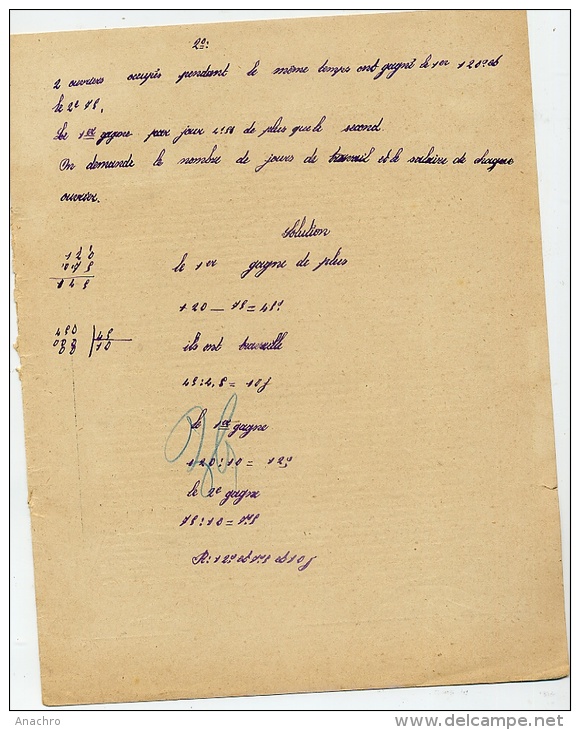 2º:
2 ouvriers occupés pendant le même temps ont gagné le 1er 120f et
le 2e 75.
Le 1er gagne par jour 4f5 de plus que le second.
On demande le nombre de jours de travail et le salaire de chaque
ouvrier.
Solution
120
075
145
le 1er gagne de plus
120 — 75 = 45f
450 | 45
00 10
ils ont travaillé
45 : 4,5 = 10j
le 1er gagne
120 : 10 = 12f
le 2e gagne
75 : 10 = 7f5
R: 12f et 7f5 et 10j
Anachro
www.delcampe.net